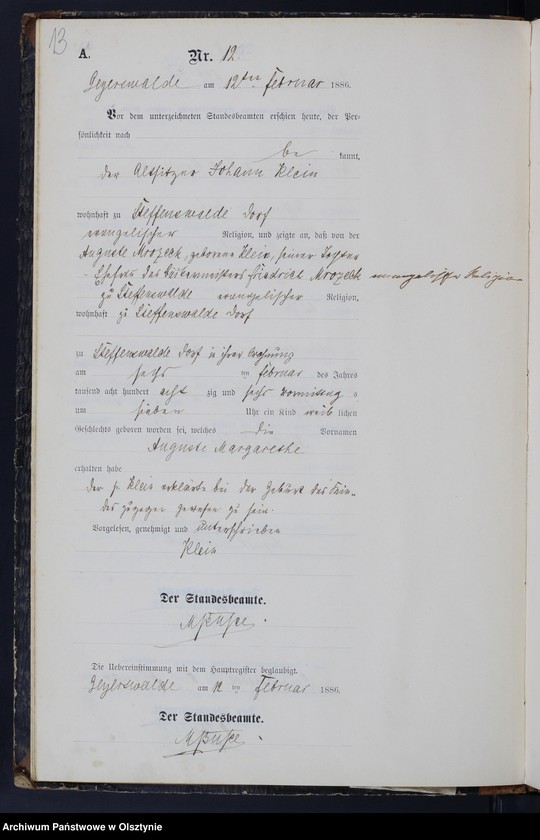 13
A.
Nr. 12.
Geyerswalde am 12ten Februar 1886.
Vor dem unterzeichneten Standesbeamten erschien heute, der Per-
sönlichkeit nach
be kannt,
der Altsitzer Johann Klein
wohnhaft zu Steffenswalde Dorf
evangelischer Religion, und zeigte an, daß von der
Auguste Mrozeck, geborene Klein, seiner Tochter
Ehefrau des Friedrich Mrozeck evangelischer Religion
zu Steffenswalde evangelischer Religion,
wohnhaft zu Steffenswalde Dorf
zu Steffenswalde Dorf in ihrer Wohnung
am sechs ten Februar des Jahres
tausend acht hundert acht zig und sechs Vormittag s
um sieben Uhr ein Kind weib lichen
Geschlechts geboren worden sei, welches die Vornamen
Auguste Margarethe
erhalten habe
der p. Klein erklärte bei der Geburt des Kin-
des zugegen gewesen zu sein.
Vorgelesen, genehmigt und unterschrieben
Klein
Der Standesbeamte.
Die Uebereinstimmung mit dem Hauptregister beglaubigt.
Geyerswalde am 12 ten Februar 1886.
Der Standesbeamte.
Archiwum Państwowe w Olsztynie